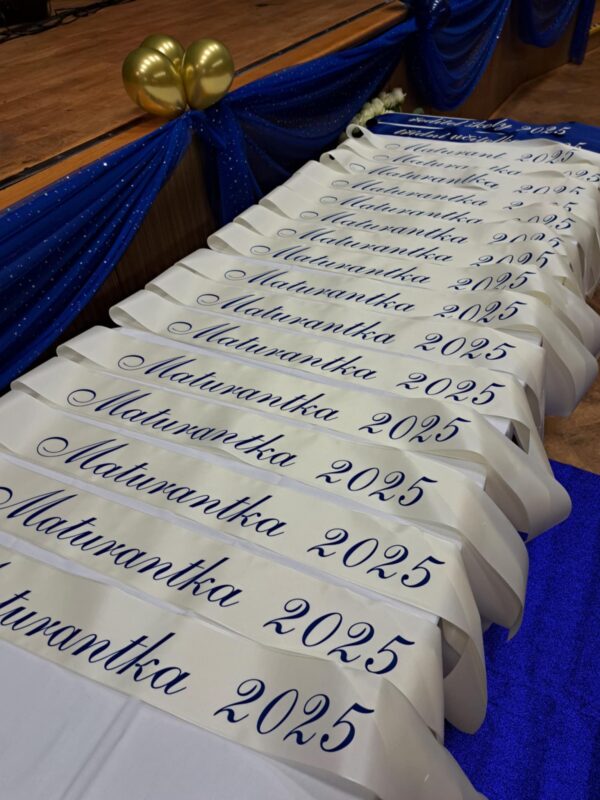 ředitel školy 2025
Maturant 2025
Maturantka 2025
Maturantka 2025
Maturantka 2025
Maturantka 2025
Maturantka 2025
Maturantka 2025
Maturantka 2025
Maturantka 2025
Maturantka 2025
Maturantka 2025
Maturantka 2025
Maturantka 2025
Maturantka 2025
Maturantka 2025
aturantka 2025